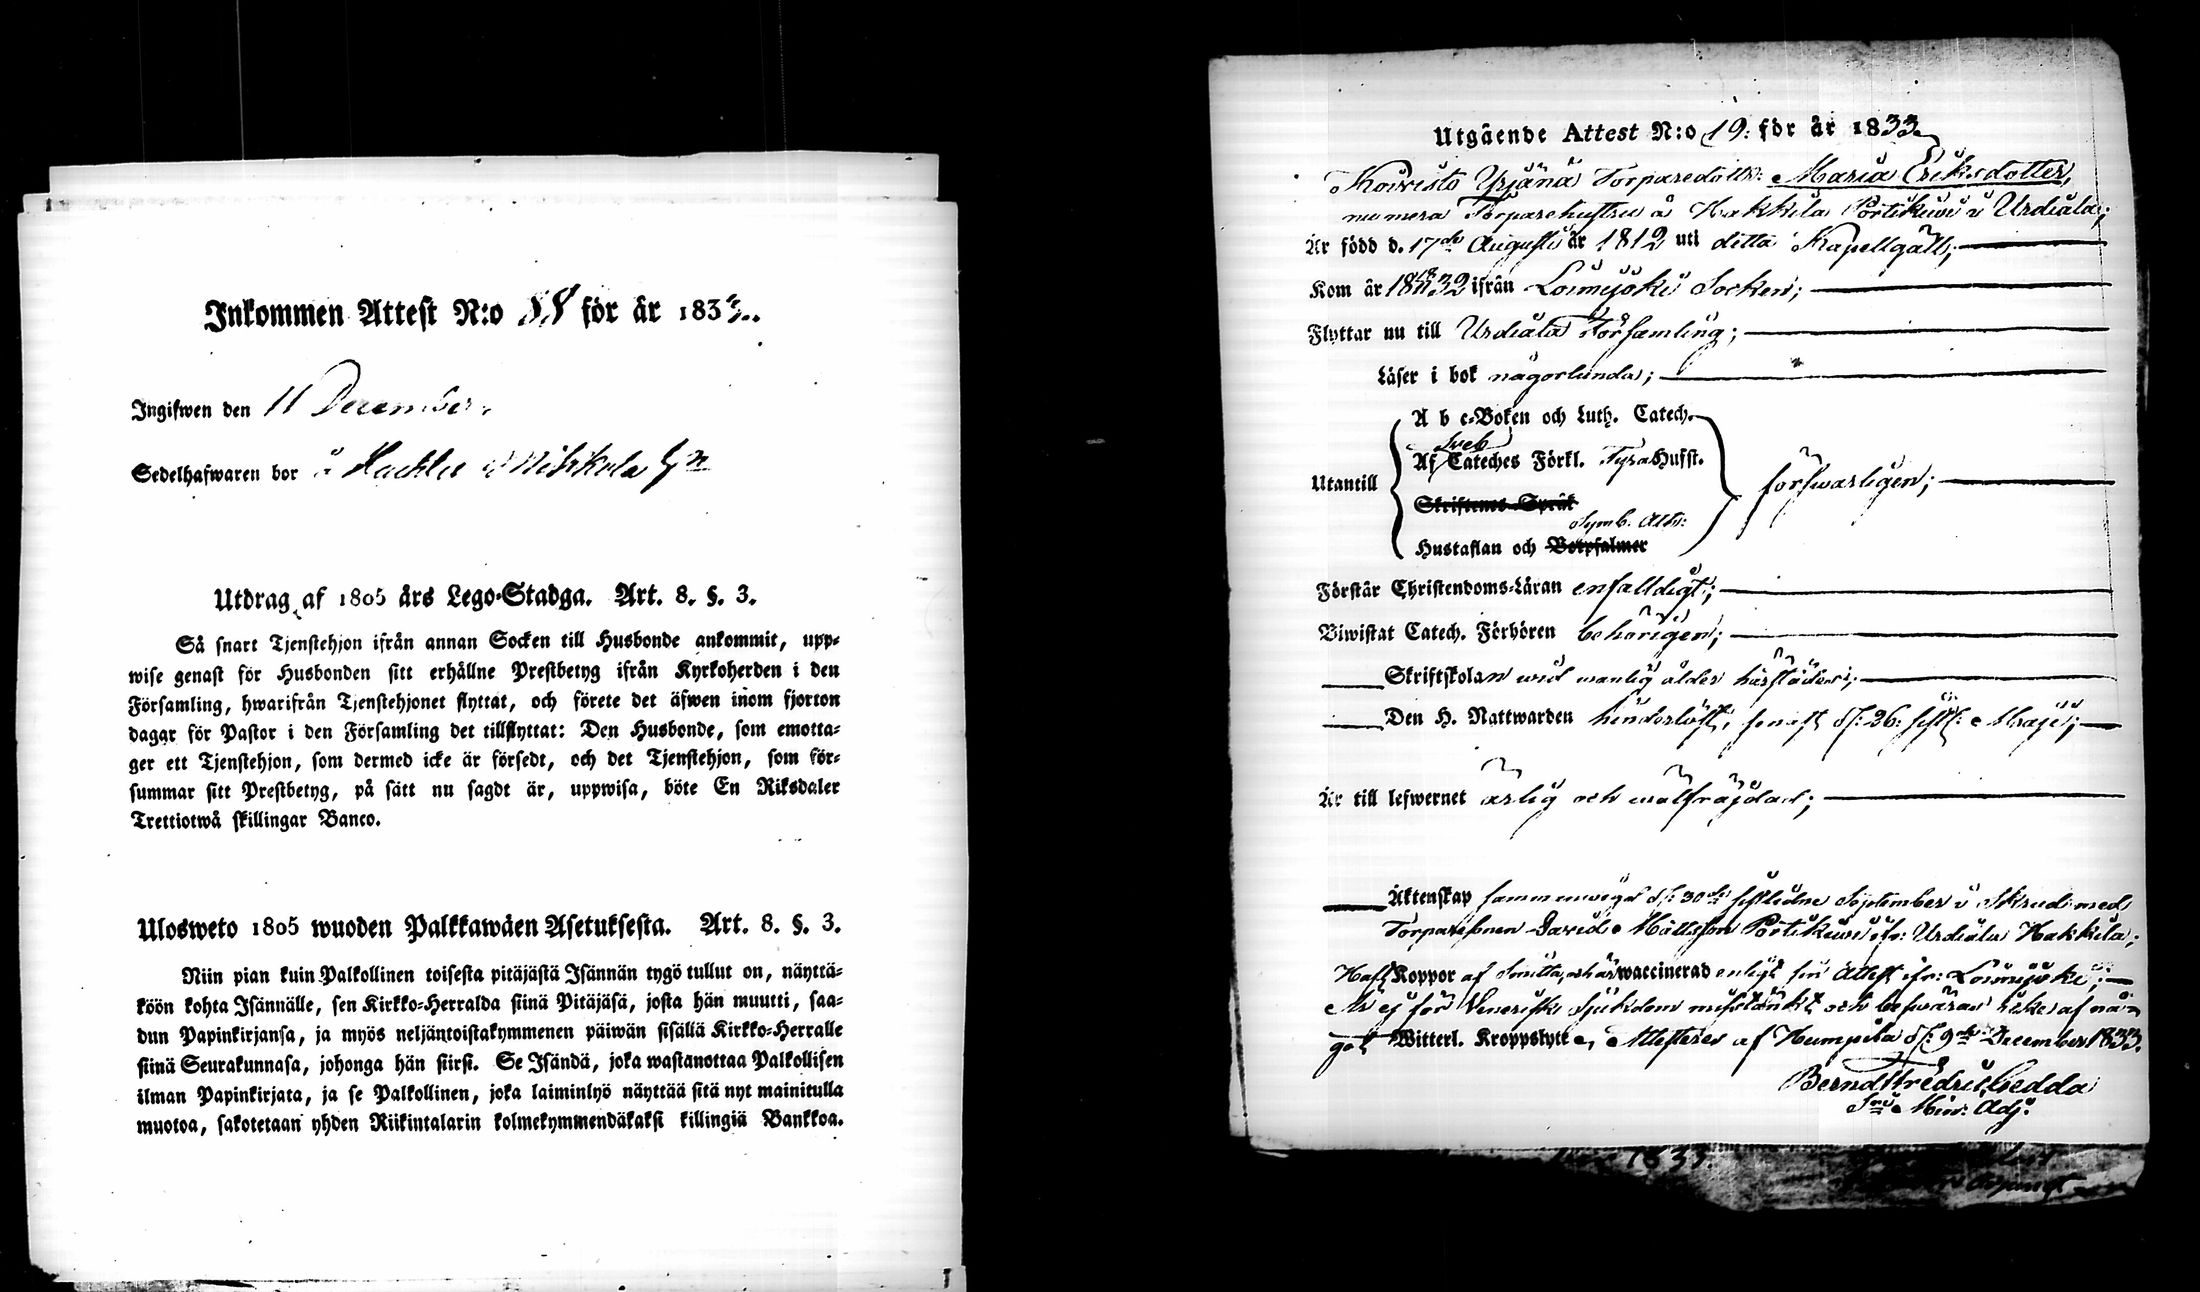 Inkommen Attest N:o 88 för år 1833.
Ingifwen den 11 December.
Sedelhafwaren bor å Hackla
Utdrag af 1805 års Lego-Stadga. Art. 8. §. 3.
Så snart Tjenstehjon ifrån annan Socken till Husbonde ankommit, upp-
wise genast för Husbonden sitt erhållne Prestbetyg ifrån Kyrkoherden i den
Församling, hwarifrån Tjenstehjonet flyttat, och förete det äfwen inom fjorton
dagar för Pastor i den Församling det tillflyttat: Den Husbonde, som emotta-
ger ett Tjenstehjon, som dermed icke är försedt, och det Tjenstehjon, som för-
summar sitt Prestbetyg, på sätt nu sagdt är, uppwisa, böte En Riksdaler
Trettiotwå skillingar Banco.
Ulosweto 1805 wuoden Palkkawäen Asetuksesta. Art. 8. §. 3.
Niin pian kuin Palkollinen toisesta pitäjästä Isännän tygö tullut on, näyttä-
köön kohta Isännälle, sen Kirkko-Herralda siinä Pitäjäsä, josta hän muutti, saa-
dun Papinkirjansa, ja myös neljäntoistakymmenen päiwän sisällä Kirkko-Herralle
siinä Seurakunnasa, johonga hän siirsi. Se Isändä, joka wastanottaa Palkollisen
ilman Papinkirjata, ja se Palkollinen, joka laiminlyö näyttää sitä nyt mainitulla
muotoa, sakotetaan yhden Riikintalarin kolmekymmendäkaksi killingiä Bankkoa.
Utgående Attest N:o 19: för år 1833
Koivisto Yrjänä Torparedottr: Maria Eriksdotter,
numera Torparehustru å Hakkila Pörtikuivi i Urdiala;
Är född d. 17de Augusti år 1812 uti detta Kapellgäll;
Kom år 1832 ifrån Loimijoki Socken;
Flyttar nu till Urdiala Församling;
Läser i bok någorlunda;
A b c-Boken och Luth. Catech.
Sveb
Utantill Af Cateches Förkl. Fyra Hufst. försvarligen;
Skriftenes Språk
Symb. Ath:
Hustaflan och Botpsalmer
Förstår Christendoms-Läran enfalldigt;
Biwistat Catech. Förhören behörigen;
Skriftskolan wid manlig ålder härstädes;
Den H. Nattwarden hinderslöst, senast d: 26: sistl: Maji;
Är till lefwernet ärlig och wälfräjdad;
Äktenskap sammanvigd d: 30de sistledne September i Skrud med
Torparesonen David Mattsson Pörtikuivi ifr: Urdiala Hakkila;
Haft Koppor af Smitta, och är waccinerad enligt sin Attest ifr: Loimijoki;
Är ej för Venerisk sjukdom misstänkt och besväras icke af nå-
got Witterl. Kroppslyte, Attesteres af Humpila d: 9de December 1833.
Berndt Fredric Gedda
Sni Min: Adj:
1833.